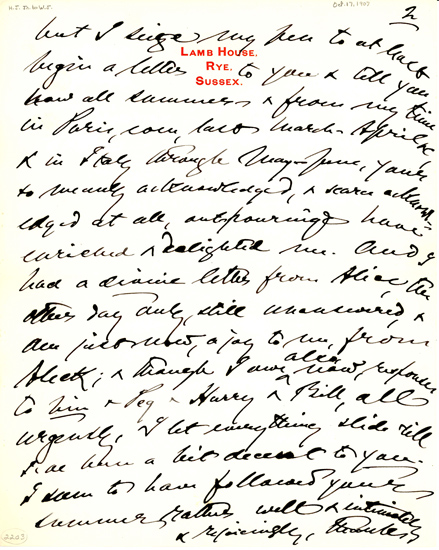 H.J. to W.J.
Oct. 17, 1907
2
but I seize my pen to at last
LAMB HOUSE.
RYE.
SUSSEX.
begin a letter to you & tell you
how all summer & from my time
in Paris, even, last March-April &
& in Italy through May-June, your
so meanly acknowledged, & scarce acknowl-
edged at all, outpourings have
enriched & delighted me. And I
had a divine letter from Alice, the
other day only, still unanswered, &
one just now, a joy to me, from
Aleck; & though I owe also now, responses
to him & Peg & Harry & Bill, all
urgently, I let everything slide till
I've been a bit decent to you.
I seem to have followed your
summer rather well & intimately
& rejoicingly, thanks
2203